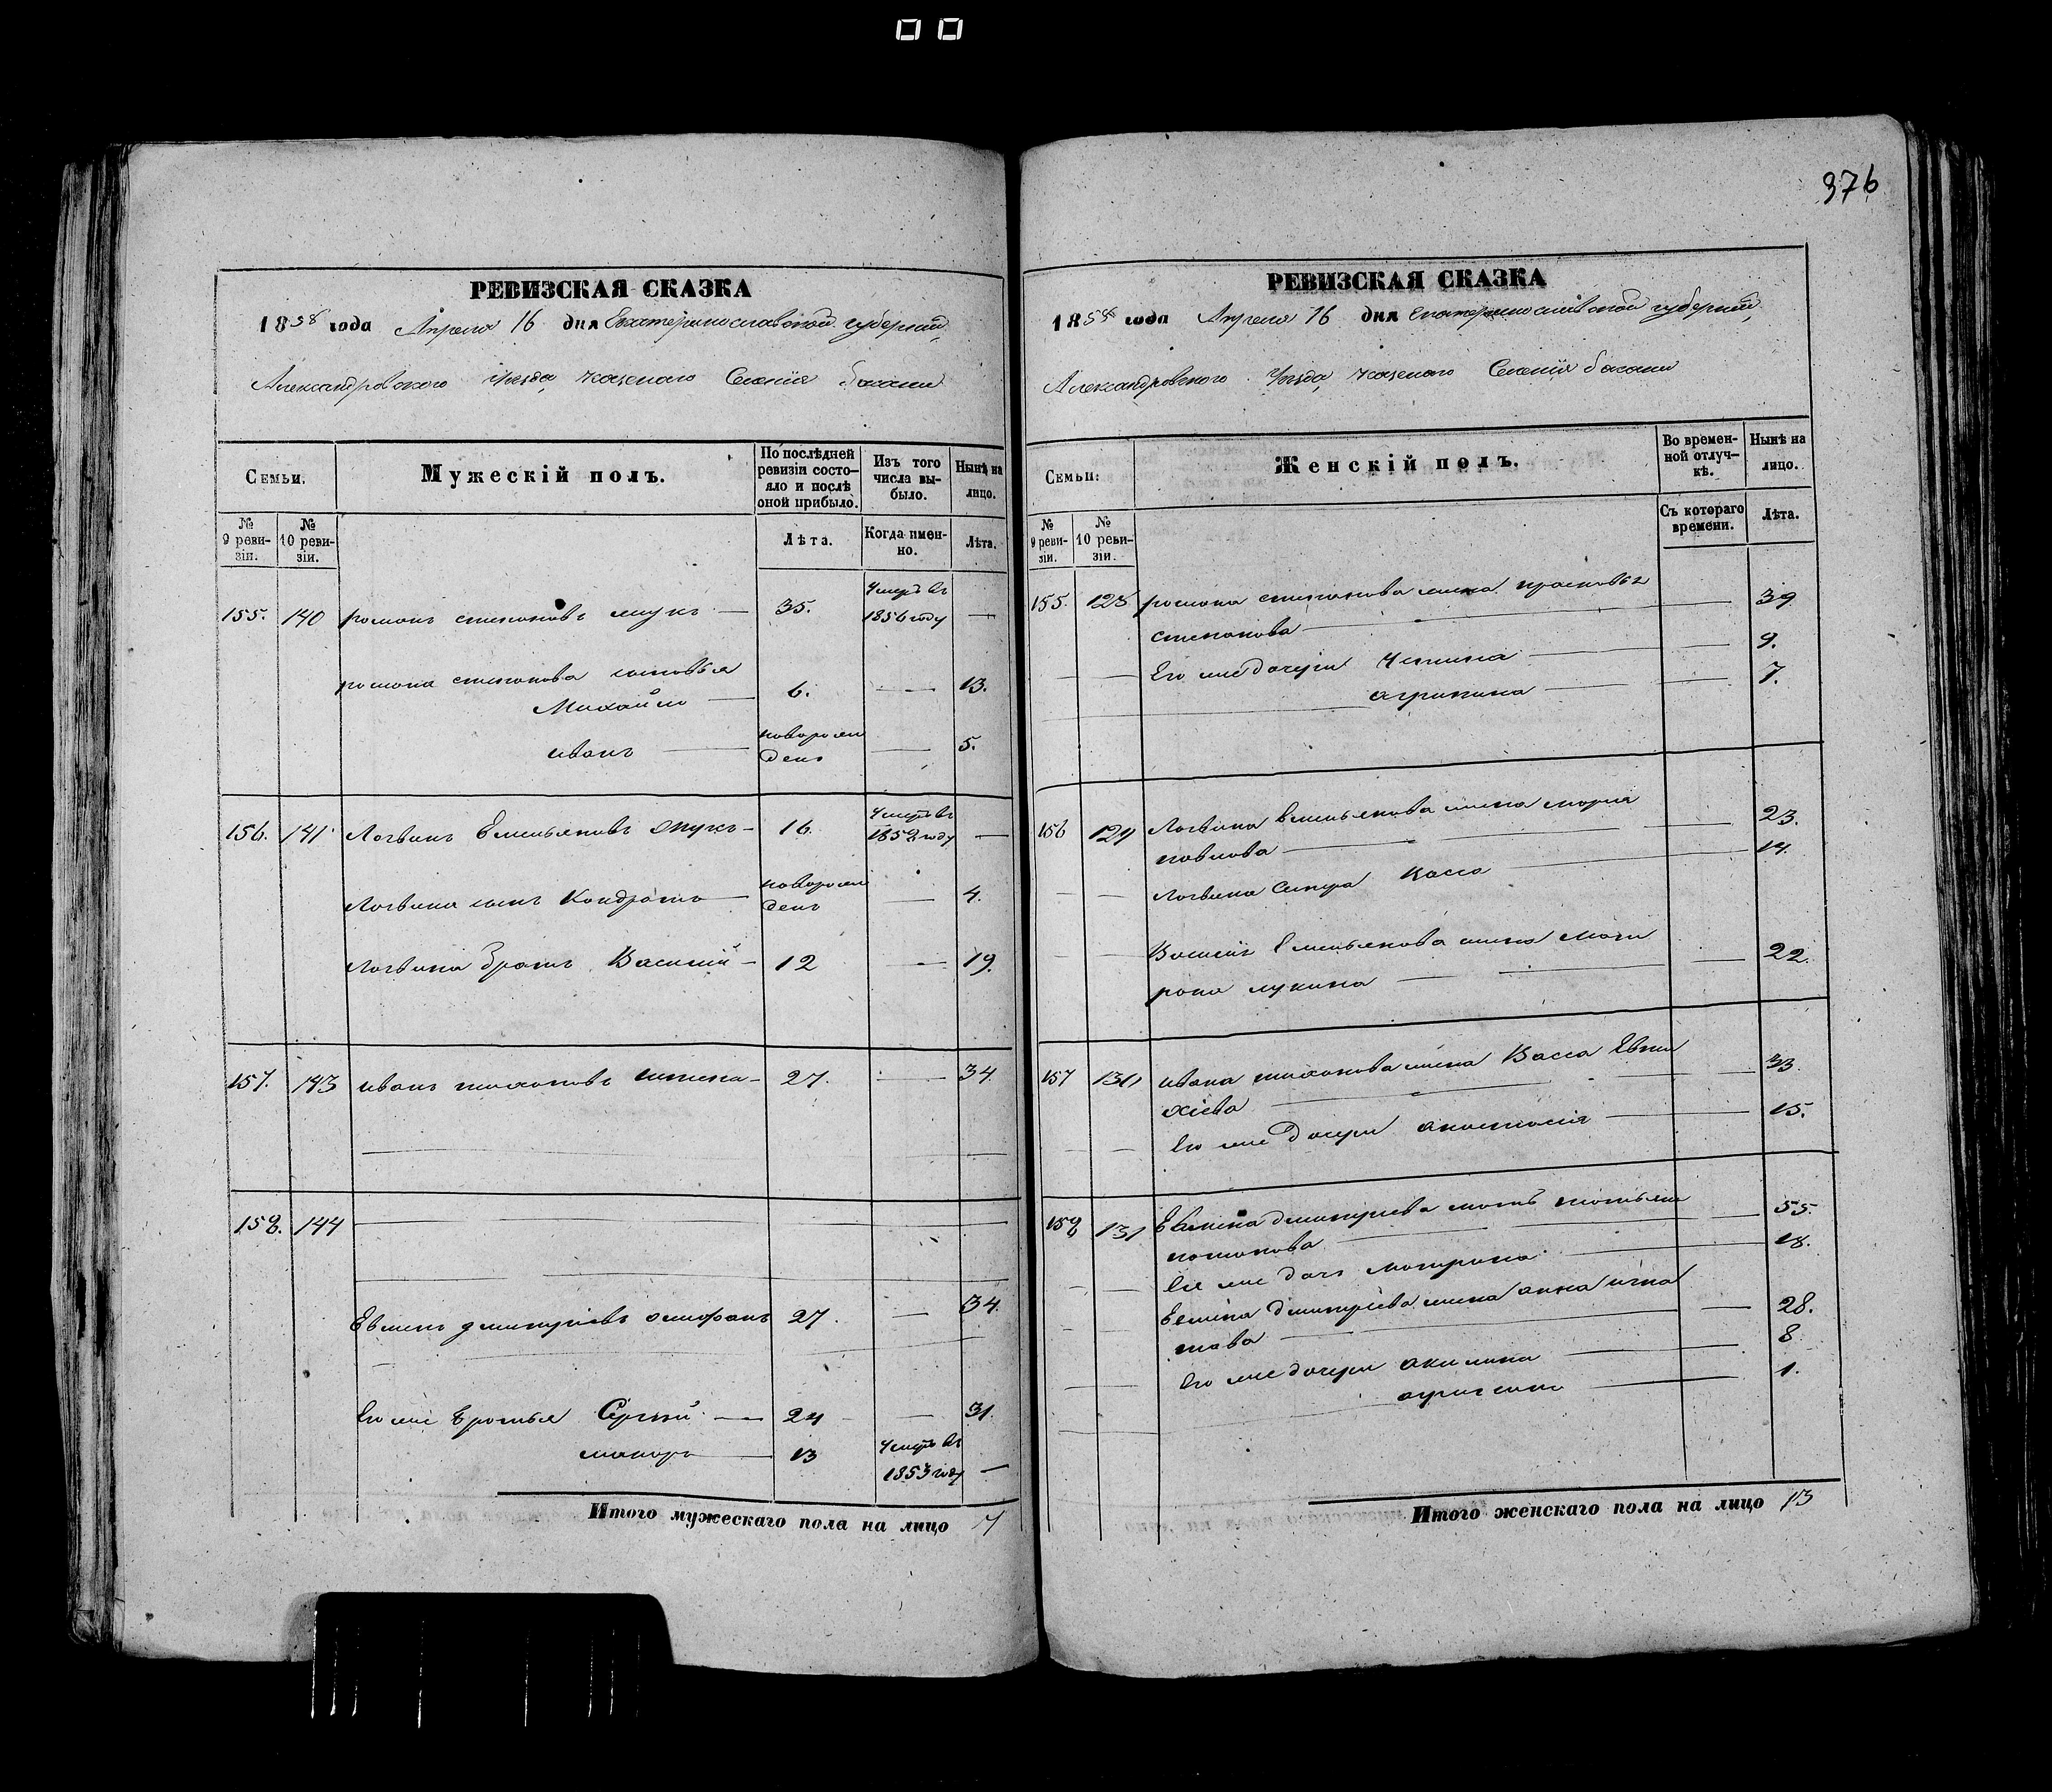 376
РЕВИЗСКАЯ СКАЗКА
1858 года Апреля 16 дня Екатеринославской губернии,
Александровского уѣзда казенаго Селенія
Семьи.
Мужескій полъ.
По послѣдней ревизіи состояло и послѣ оной прибыло.
Изъ того числа выбыло.
Нынѣ на лицо.
№ 9 ревизіи.
№ 10 ревизіи.
Лѣта.
Когда именно.
Лѣта.
155. 140 романъ степановъ 35. Умеръ въ 1856 году —
романа степанова сыновья
Михайло — 6. — 13.
иванъ — новорожденъ — 5.
156. 141 Логвинъ Емельяновъ 16. Умеръ въ —
Логвина сынъ Кондратъ — новорожденъ — 4.
Логвина братъ Василий — 12 — 19.
157. 143 иванъ 27. — 34.
158. 144
Евменъ дмитріевъ 27. — 34.
Его же братья Сергѣй — 24 — 31.
макаръ — 13 Умеръ въ 1853 году —
Итого мужескаго пола на лицо 7
РЕВИЗСКАЯ СКАЗКА
1858 года Апреля 16 дня Екатеринославской губерніи,
Александровского Уѣзда казенаго Селенія
Семьи:
Женскій полъ.
Во временной отлучкѣ.
Нынѣ на лицо.
№ 9 ревизіи.
№ 10 ревизіи.
Съ котораго времени.
Лѣта.
155. романа степанова жена прасковья
степанова — 39
Его же дочери — 9.
агрипина — 7.
156 Логвина Емельянова жена мария
павлова — 23.
Логвина сестра Васса — 14.
Василія Емельянова жена мат
рона лукина — 22.
157 130 ивана жена Васса Евти
хіева — 33.
Его же дочери анастасія — 15.
158 131 Евмена дмитриева мать
потапова — 55.
Ея же дочь матрона — 18.
Евмена дмитріева жена анна игна
това — 28.
Его же дочери акилина — 8
1.
Итого женскаго пола на лицо 13